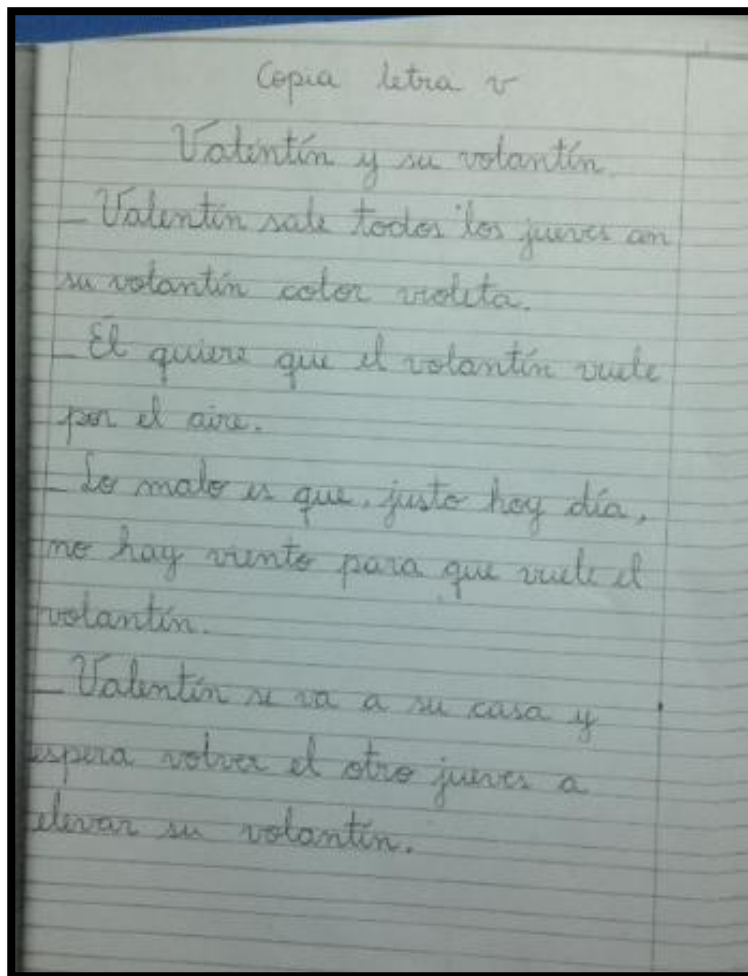 Copia letra v
Valentín y su volantín.
_ Valentín sale todos los jueves con
su volantín color violeta.
_ El quiere que el volantín vuele
por el aire.
_ Lo malo es que, justo hoy día,
no hay viento para que vuele el
volantín.
_ Valentín se va a su casa y
espera volver el otro jueves a
elevar su volantín.